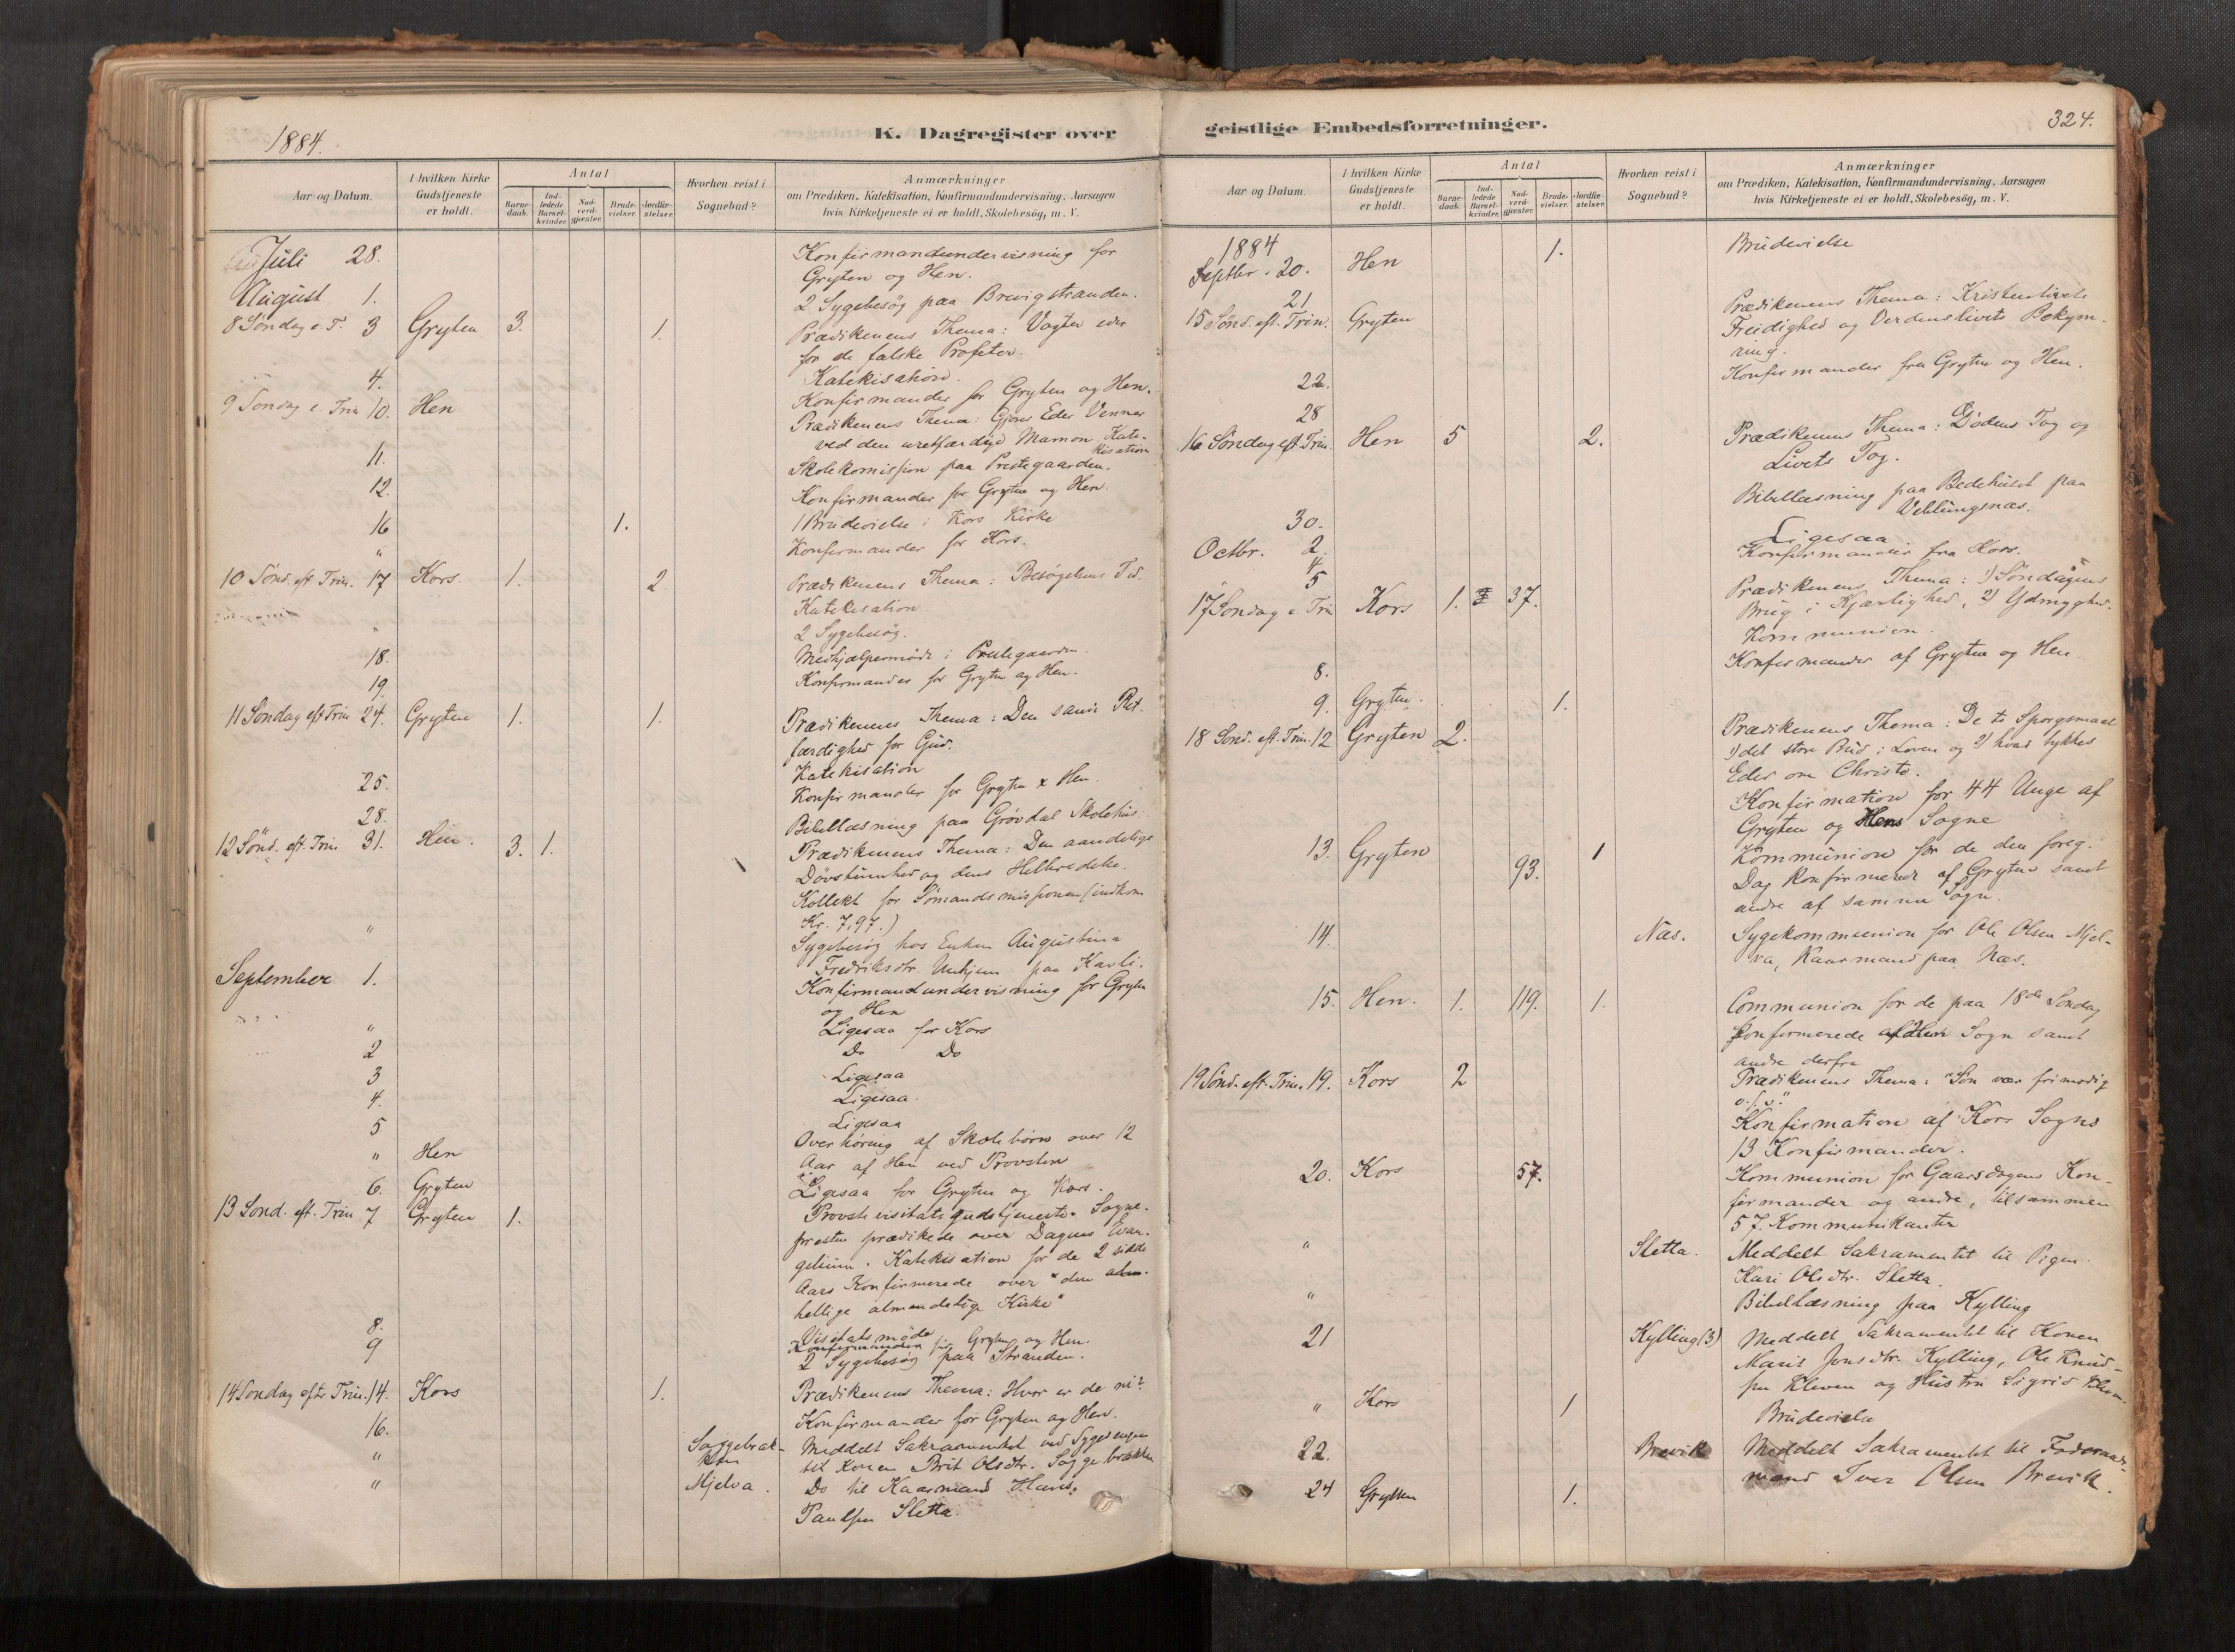 1884.
K. Dagregister over
Aar og Datum.
I hvilken Kirke
Gudstjeneste
er holdt.
Antal
Barne-
daab.
Ind-
ledede
Barsel-
kvinder.
Nad-
verd-
gjæster.
Brude-
vielser.
Jordfæ-
stelser.
Hvorhen reist i
Sognebud?
Anmærkninger
om Prædiken, Katekisation, Konfirmandundervisning, Aarsagen
hvis Kirketjeneste ei er holdt, Skolebesög, m. V.
Juli 28. Konfirmandundervisning for
Gryten og Hen.
August 1. 2 Sygebesøg paa Brevigstranden.
8 Søndag e. T. 3 Gryten 3. 1. Prædikenens Thema: Vogter eder
for de falske Profeter.
Katekisation.
4. Konfirmander for Gryten og Hen.
9 Søndag e. Trin 10. Hen Prædikenens Thema: Gjører Eder Venner
ved den uretfærdige Mamon. Kate-
kisation
11. Skolekomission paa Prestegaarden.
12. Konfirmander for Gryten og Hen.
16 1. 1 Brudevielse i Kors Kirke
" Konfirmander for Kors.
10 Sønd. eft Trin. 17 Kors. 1. 2 Prædikenens Thema: Besøgelsens Tid.
Katekisation.
" 2 Sygebesøg.
18. Medhjælpermöde i Prestegaarden.
19. Konfirmander for Gryten og Hen.
11 Søndag eft Trin 24. Gryten 1. 1. Prædikenens Thema: Den sande Ret-
færdighed for Gud.
Katekisation
25. Konfirmander for Gryten & Hen.
28. Bibellæsning paa Grøvdal Skolehus.
12 Sönd. eft. Trin 31. Hen. 3. 1. Prædikenens Thema: Den aandelige
Døvstumhed og dens Helbredelse.
Kollekt for Sömandsmissionen (indkom
Kr. 7,97.)
" Sygebesög hos Enken Augustina
Fredriksdtr. Unhjem paa Kavli.
September 1. Konfirmandundervisning for Gryten
og Hen
" Ligesaa for Kors
2 Do Do
3 Ligesaa
4. Ligesaa.
5 Ligesaa
" Hen Overhøring af Skolebörn over 12
Aar af Hen ved Provsten
6. Gryten Ligesaa for Gryten og Kors.
13 Sond. eft. Trin 7 Gryten 1. Provstevisitatsgudstjeneste. Sogne-
presten prædikede over Dagens Evan-
gelium. Katekisation for de 2 sidste
Aars Konfirmerede over "den alm.
hellige almindelige Kirke"
8. Visitatsmøde
9 Konfirmander for Gryten og Hen.
2 Sygebesøg paa Stranden.
14 Søndag efter Trin. 14. Kors 1. Prædikenens Thema: Hvor er de ni?
16. Konfirmander for Gryten og Hen.
" Saggebrak-
ken Meddelt Sakramentet ved Sygesengen
til Konen Brit Olsdtr. Saggebrakken
" Mjelva. Do til Kaarmand Hans
Paulsen Sletta.
geistlige Embedsforretninger.
324.
Aar og Datum.
I hvilken Kirke
Gudstjeneste
er holdt.
Antal
Barne-
daab.
Ind-
ledede
Barsel-
kvinder.
Nad-
verd-
gjæster.
Brude-
vielser.
Jordfæ-
stelser.
Hvorhen reist i
Sognebud?
Anmærkninger
om Prædiken, Katekisation, Konfirmandundervisning, Aarsagen
hvis Kirketjeneste ei er holdt, Skolebesög, m. V.
1884
Septbr. 20. Hen 1. Brudevielse
21
15 Sönd. eft. Trin. Gryten Prædikenens Thema: Kristenlivets
Freidighed og Verdenslivets Bekym-
ring.
22. Konfirmander fra Gryten og Hen.
28
16 Søndag eft Trin. Hen 5 2. Prædikenens Thema: Dødens Tog og
Livets Tog.
Bibellæsning paa Bedehuset paa
Veblungsnæs.
30. Ligesaa
Octbr. 2. Konfirmander fra Kors.
4
5
17 Søndag e Trin Kors 1. 37. Prædikenens Thema: 1) Søndagens
Brug i Kjærlighed, 2) Ydmyghed.
Kommunion.
8. Konfirmander af Gryten og Hen
9. Gryten. 1.
18 Sönd. eft. Trin. 12 Gryten 2. Prædikenens Thema: De to Spørgsmaal
1) det store Bud i Loven og 2) hvad tykkes
Eder om Christo.
Konfirmation for 44 Unge af
Gryten og Hens Sogne
13. Gryten 93. 1 Kommunion for de den foreg.
Dag Konfirmerede af Gryten samt
andre af samme Sogn.
14. Næs. Sygekommunion for Ole Olsen Mjel-
va, Kaarmand paa Næs.
15. Hen. 1. 119. 1. Communion for de paa 18de Søndag
konfirmerede af Hen Sogn samt
andre derfra
19 Sönd. eft. Trin. 19. Kors 2 Prædikenens Thema: "Søn vær frimodig
o.s.v."
Konfirmation af Kors Sogns
13 Konfirmander.
20. Kors 57. Kommunion for Gaarsdagens Kon-
firmander og andre, tilsammen
57. Kommunikanter
" Sletta. Meddelt Sakramentet til Pigen
Kari Olsdtr. Sletta.
" Bibellæsning paa Kylling
21 Kylling (3) Meddelt Sakramentet til Konen
Marit Jonsdtr. Kylling, Ole Knud-
sen Kleven og Hustru Sigrid Kleven.
" Kors 1 Brudevielse
22. Brevik Meddelt Sakramentet til Föderaads-
mand Iver Olsen Brevik.
24 Gryten 1.